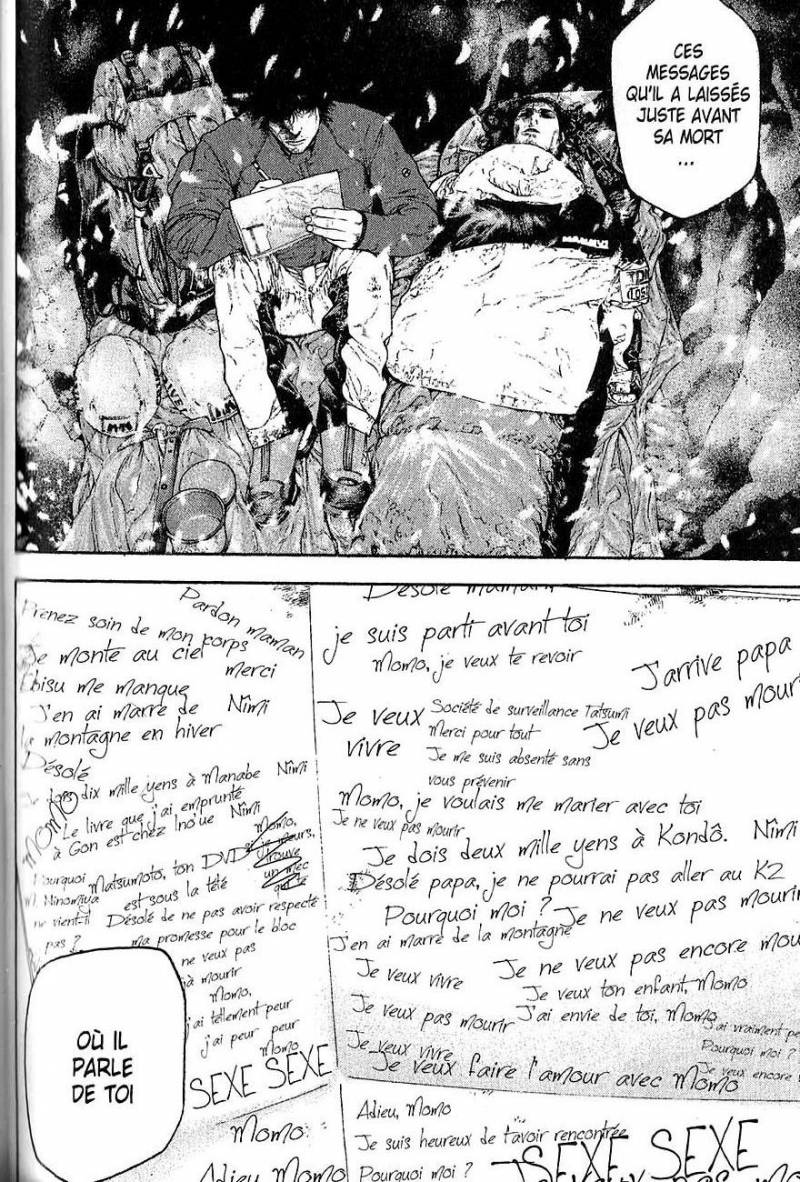 CES
MESSAGES
QU'IL A LAISSÉS
JUSTE AVANT
SA MORT
...
Pardon maman
Prenez soin de mon corps
Je monte au ciel
merci
Ebisu me manque
J'en ai marre de Nîmi
la montagne en hiver
Désolé
Je dois dix mille yens à Manabe Nîmi
MOMO
Le livre que j'ai emprunté
à Gon est chez Ino'ue Nîmi
Momo,
si je meurs,
trouve
un mec
qui te
Pourquoi
M. Ninomiya
ne vient-il
pas ?
Matsumoto, ton DVD
est sous la télé
Désolé de ne pas avoir respecté
ma promesse pour le bloc
ne veux pas
jà mourir
Momo,
j'ai tellement peur
j'ai peur peur
Momo
SEXE SEXE
Momo
Adieu Momo
Désolé maman
je suis parti avant toi
Momo, je veux te revoir
J'arrive papa
Je veux pas mouri
Je veux
vivre
Société de surveillance Tatsumi
Merci pour tout
Je me suis absenté sans
vous prévenir
Momo, je voulais me marier avec toi
Je ne veux pas mourir
Je dois deux mille yens à Kondô. Nîmi
Désolé papa, je ne pourrai pas aller au K2
Pourquoi moi ?
Je ne veux pas mourir
J'en ai marre de la montagne
Je veux vivre
Je ne veux pas encore mou
Je veux ton enfant, Momo
Je veux pas mourir
J'ai envie de toi, Momo
J'ai vraiment pe
Pourquoi moi ?
Je veux encore
Je veux vivre
Je veux faire l'amour avec Momo
Adieu, Momo
Je suis heureux de t'avoir rencontrée
Pourquoi moi ?
SEXE SEXE
OÙ IL
PARLE
DE TOI